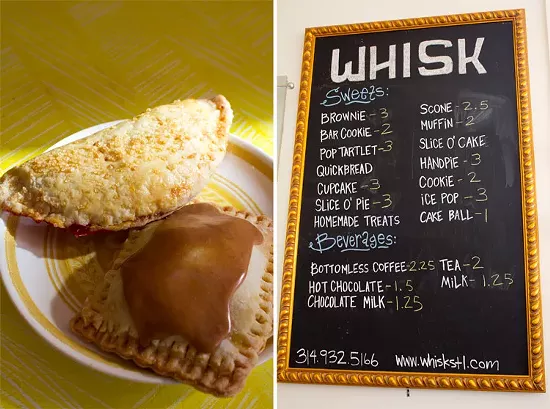 WHISK
Sweets:
BROWNIE-3
BAR COOKIE-2
POP TARTLET-3
QUICKBREAD
CUPCAKE-3
SLICE O' PIE-3
HOMEMADE TREATS
SCONE-2.5
MUFFIN-2
SLICE O' CAKE
HANDPIE-3
COOKIE-2
ICE POP-3
CAKE BALL-1
Beverages:
BOTTOMLESS COFFEE-2.25 TEA-2
HOT CHOCOLATE-1.5 MILK-1.25
CHOCOLATE MILK-1.25
314.932.5166 www.whiskstl.com